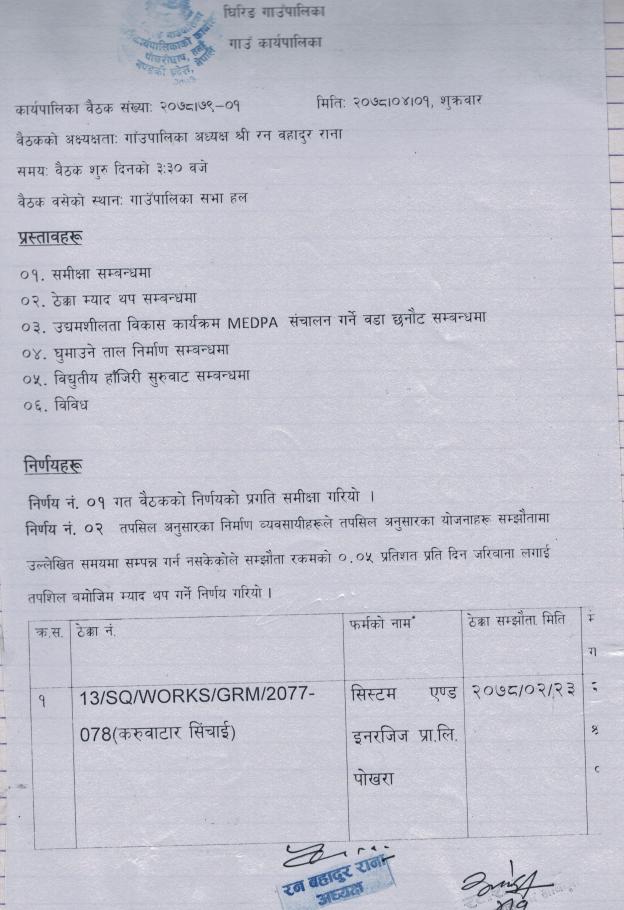 घिरिङ गाउँपालिका
गाउँ कार्यपालिका
कार्यपालिकाको
पोखरीछाप, तनहुँ
गण्डकी प्रदेश, नेपाल
कार्यपालिका वैठक संख्या: २०७८।७९-०१ मिति: २०७८।०४।०१, शुक्रवार
वैठकको अक्ष्यक्षता: गाँउपालिका अध्यक्ष श्री रन वहादुर राना
समय: वैठक शुरु दिनको ३:३० वजे
वैठक वसेको स्थान: गाउँपालिका सभा हल
प्रस्तावहरू
०१. समीक्षा सम्बन्धमा
०२. ठेक्का म्याद थप सम्बन्धमा
०३. उद्यमशीलता विकास कार्यक्रम MEDPA संचालन गर्ने वडा छनौट सम्बन्धमा
०४. घुमाउने ताल निर्माण सम्बन्धमा
०५. विद्युतीय हाँजिरी सुरुवाट सम्बन्धमा
०६. विविध
निर्णयहरू
निर्णय नं. ०१ गत वैठकको निर्णयको प्रगति समीक्षा गरियो ।
निर्णय नं. ०२ तपसिल अनुसारका निर्माण व्यवसायीहरूले तपसिल अनुसारका योजनाहरू सम्झौतामा
उल्लेखित समयमा सम्पन्न गर्न नसकेकोले सम्झौता रकमको ०.०५ प्रतिशत प्रति दिन जरिवाना लगाई
तपशिल बमोजिम म्याद थप गर्ने निर्णय गरियो ।
क्र.स. ठेक्का नं. फर्मको नाम ठेक्का सम्झौता मिति
१ 13/SQ/WORKS/GRM/2077- सिस्टम एण्ड २०७८/०२/२३
078(करुवाटार सिंचाई) इनरजिज प्रा.लि.
पोखरा
रन बहादुर राना
अध्यक्ष